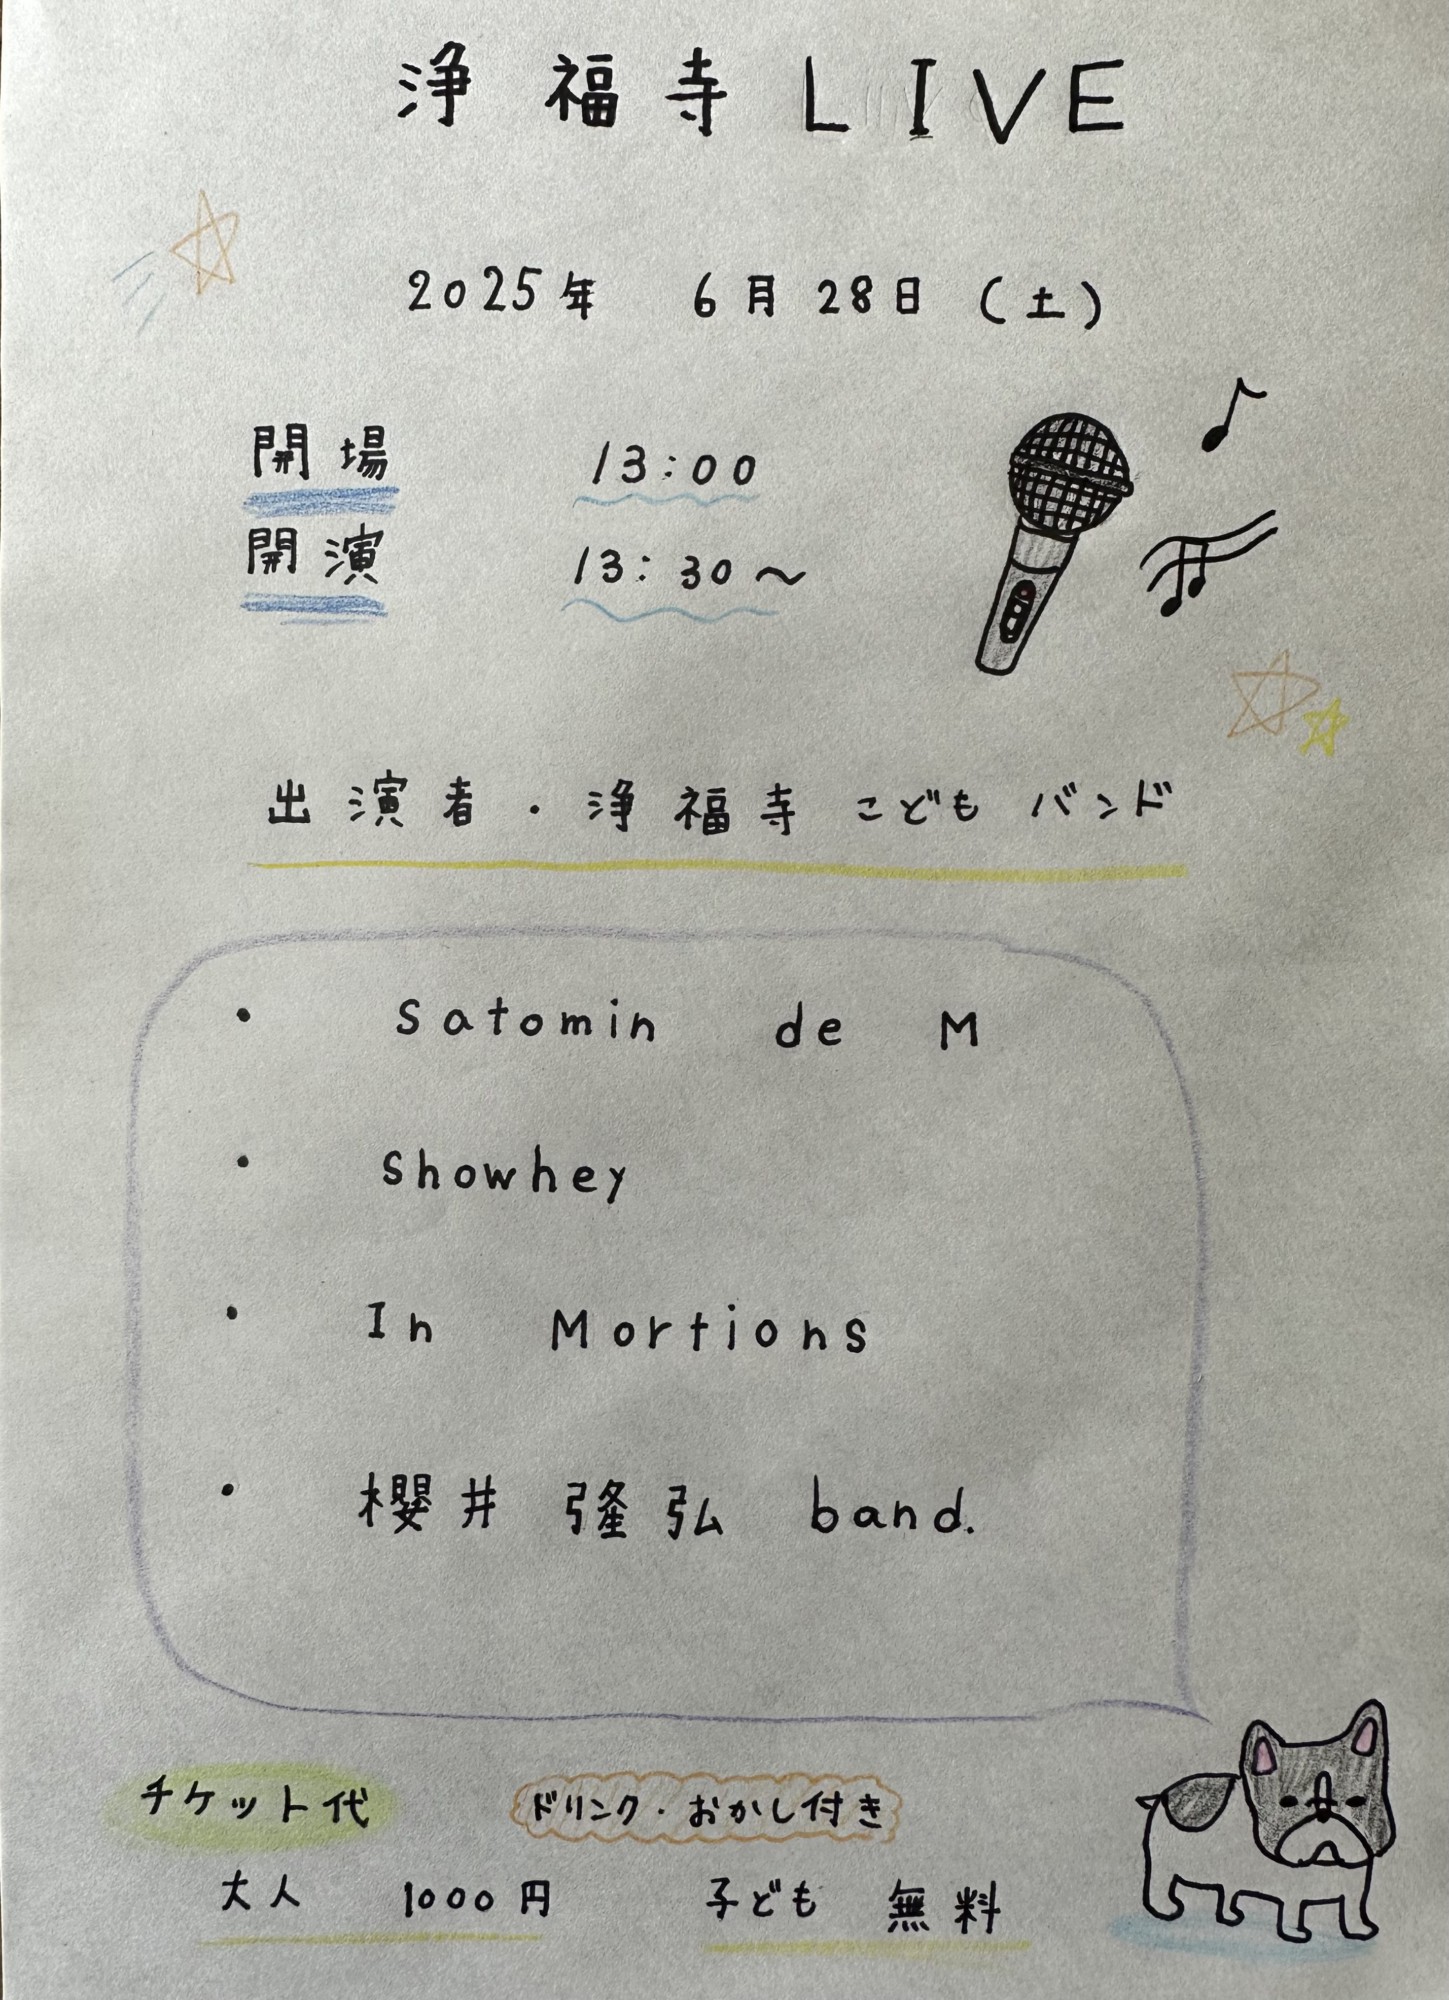 浄福寺LIVE
2025年 6月28日(土)
開場 13:00
開演 13:30〜
出演者・浄福寺こどもバンド
・ Satomin de M
・ Showhey
・ In Mortions
・ 櫻井隆弘 band.
チケット代 ドリンク・おかし付き
大人 1000円 子ども 無料